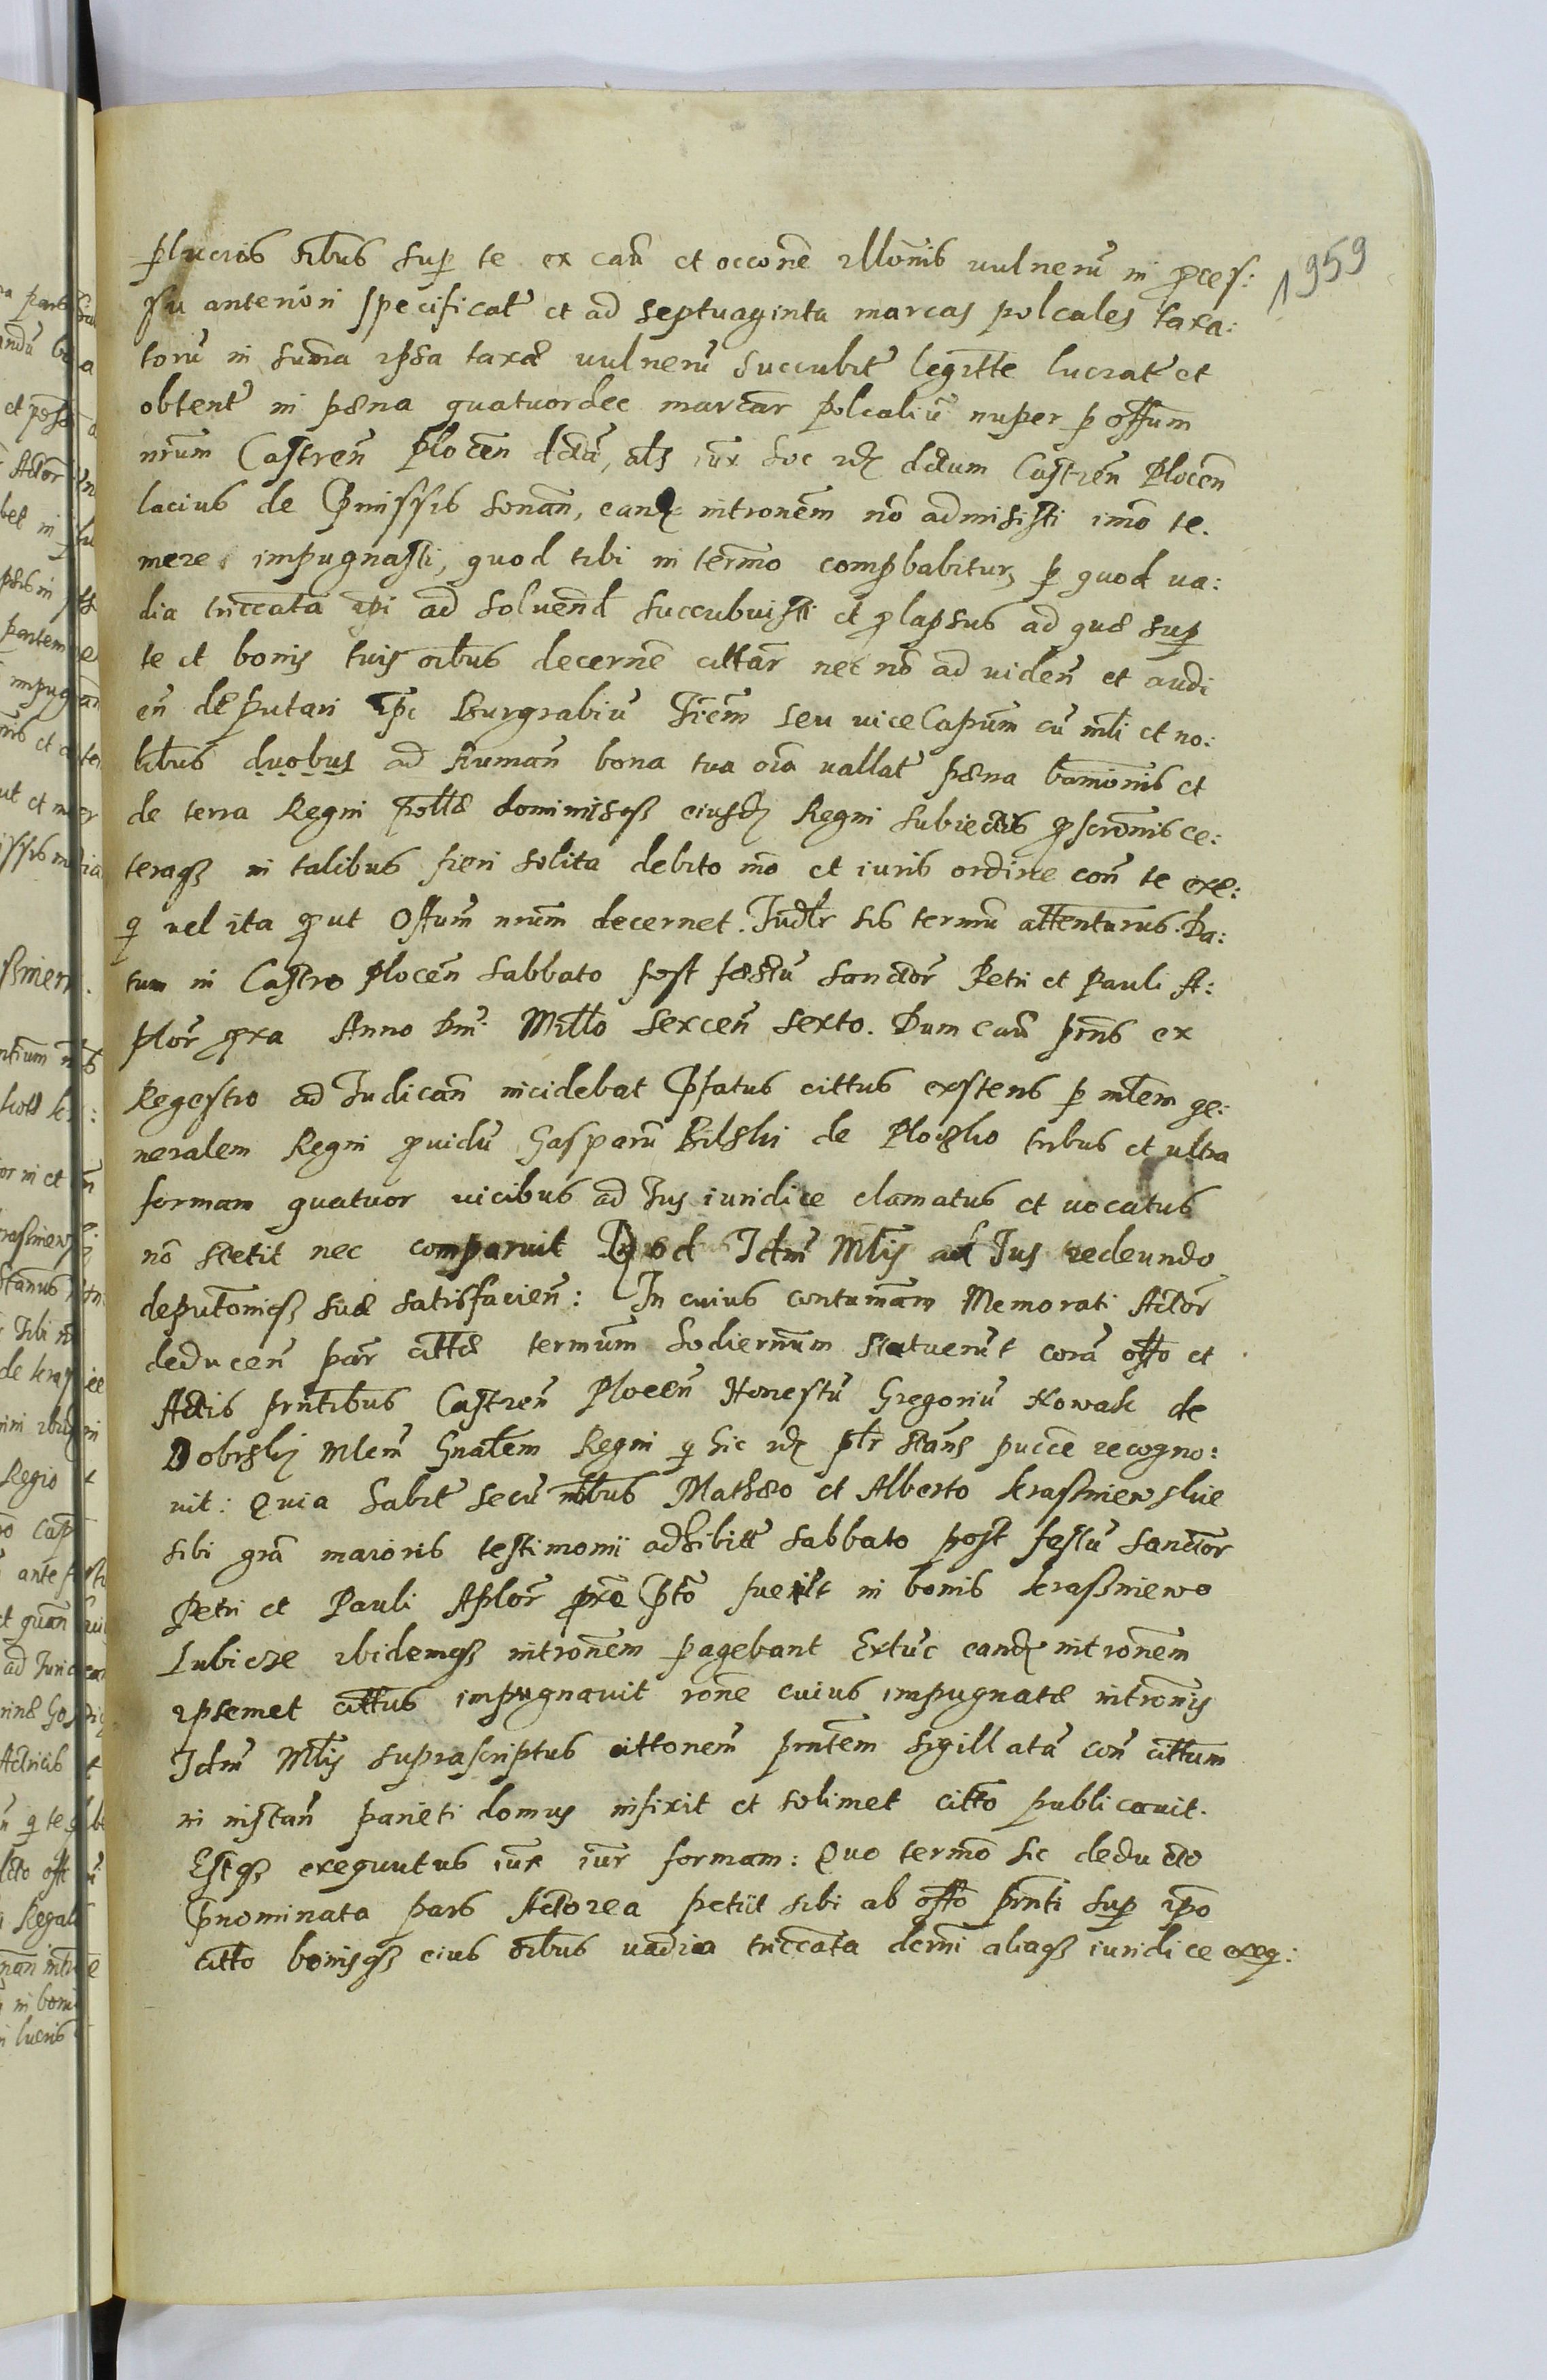 1959
p lucris sibus sup te ex cau et occone illonis vulneru in proces:
su anteriori specificat et ad septuaginta marcas polcales taxa:
toru in suma ipsa taxae vulneru succubit legitte lucrat et
obtent in paena quatuordec marcar polcaliu nuper p offum
nrum Castren Plocen dcta, als iux hoc id dctum Castren Plocen
lacius de Pmissis sonan, eand intronem no admisisti imo te.
mere impugnasti, quod tibi in termo compbabitur, p quod va:
dia triccata ipi ad solvend succubuisti et plapsus ad quae sup
te et bonis tuis oibus decerne cittar nec no ad viden et audi
en deputari ipi Burgrabiu Tiem seu vice Capum cu mli et no:
bibus duobus ad firman bona tua oia vallat paena banionis et
de terra Regni Pollae dominiisq eiusd Regni subiectis pscronis ce:
teraq in talibus fieri solita debito mo et iuris ordine con te exe:
q vel ita put Offum nrum decernet. Iudlr sis termu attenturus. Da:
tum in Castro Plocen sabbato post festu sanctor Petri et Pauli A:
plor pxa Anno Dni Millo sexcen sexto. Dum cau pnns ex
Regestro ad Iudican incidebat Pfatus cittus exstens p mlem ge:
neralem Regni pvidu Gasparu Bilski de Plocsko tribus et ultra
formam quatuor vicibus ad Ius iuridice clamatus et vocatus
no stetit nec comparuit Quod Idm Mlis ad Ius redeundo
deputoniq suae satisfacien: In cuius contumam Memorati Actor
deducen par cittae termum hodiernum statuerut cora offo et
Actis pntibus Castren Plocen Honestu Gregoriu Nowak de
Dobrsky Mlem Gnalem Regni q hic id plr stans pucce recogno:
vit: Quia habit secu nbibus Mathaeo et Alberto Kraśniewskie
sibi gra maioris testimonii adhibitt sabbato post festu sanctor
Petri et Pauli Aplor pxe Pto fuerit in bonis Kraßniewo
Lubicze ibidemq intronem pagebant Extuc eand intronem
ipsemet cittus impugnavit rone cuius impugnatae intronis
Idm Mlis suprascriptus cittonem pntem sigillata con cittum
in instan parieti domus infixit et solimet citto publicavit.
Estq exequutus iux iur formam: Quo termo sic deducto
Pnominata pars Actorea petiit sibi ab offo pnti sup ipo
citto bonisq eius oibus vadia triccata derni aliaq iuridice exeq: